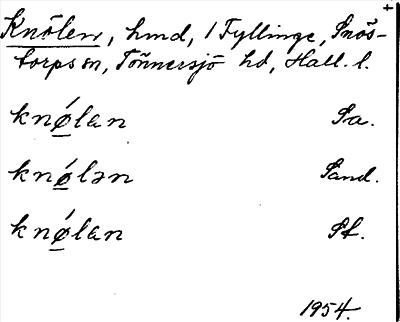 Knölen, hmd, 1 Fyllinge, Snös-
torps sn, Tönnersjö hd, Hall. l.
knǿlan Sa.
knǿlən Sand.
knǿlan St.
1954.